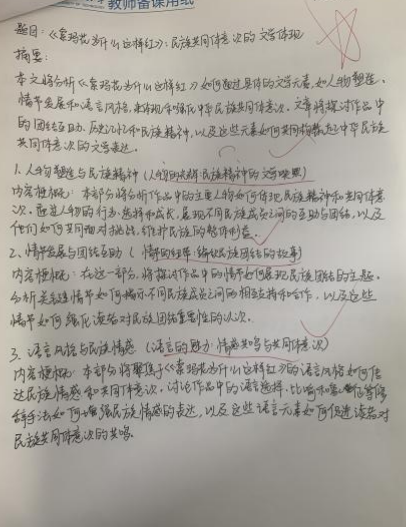 教师备课用纸
题目：《索玛花为什么这样红》：民族共同体意识的文学体现
摘要：
本文将分析《索玛花为什么这样红》如何通过具体的文学元素，如人物塑造、
情节发展和语言风格，来体现和强化中华民族共同体意识。文章将探讨作品中
的团结互助、历史记忆和民族精神，以及这些元素如何共同构建起中华民族
共同体意识的文学表达。
1. 人物塑造与民族精神（人物的光辉：民族精神的文学映照）
内容梗概：本部分将分析作品中的主要人物如何体现民族精神和共同体意
识。通过人物的行为、思想和成长，展现不同民族成员之间的互助与团结，以及
他们如何共同面对挑战，维护民族的整体利益。
2. 情节发展与团结互助（情节的纽带：编织民族团结的故事）
内容梗概：在这一部分，将探讨作品中的情节如何展现民族团结的主题。
分析关键情节如何揭示不同民族成员之间的相互支持和合作，以及这些
情节如何强化读者对民族团结重要性的认识。
3. 语言风格与民族情感（语言的魅力：情感共鸣与共同体意识）
内容梗概：本部分将聚焦于《索玛花为什么这样红》的语言风格如何传
达民族情感和共同体意识。讨论作品中的语言选择、比喻和象征等修
辞手法如何增强民族情感的表达，以及这些语言元素如何促进读者对
民族共同体意识的共鸣。